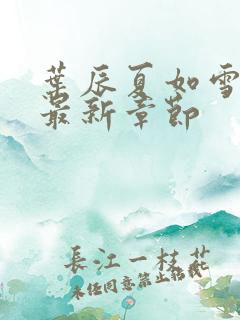 葉辰夏如雪
最新章節
長江一枝花
未经同意禁止转载